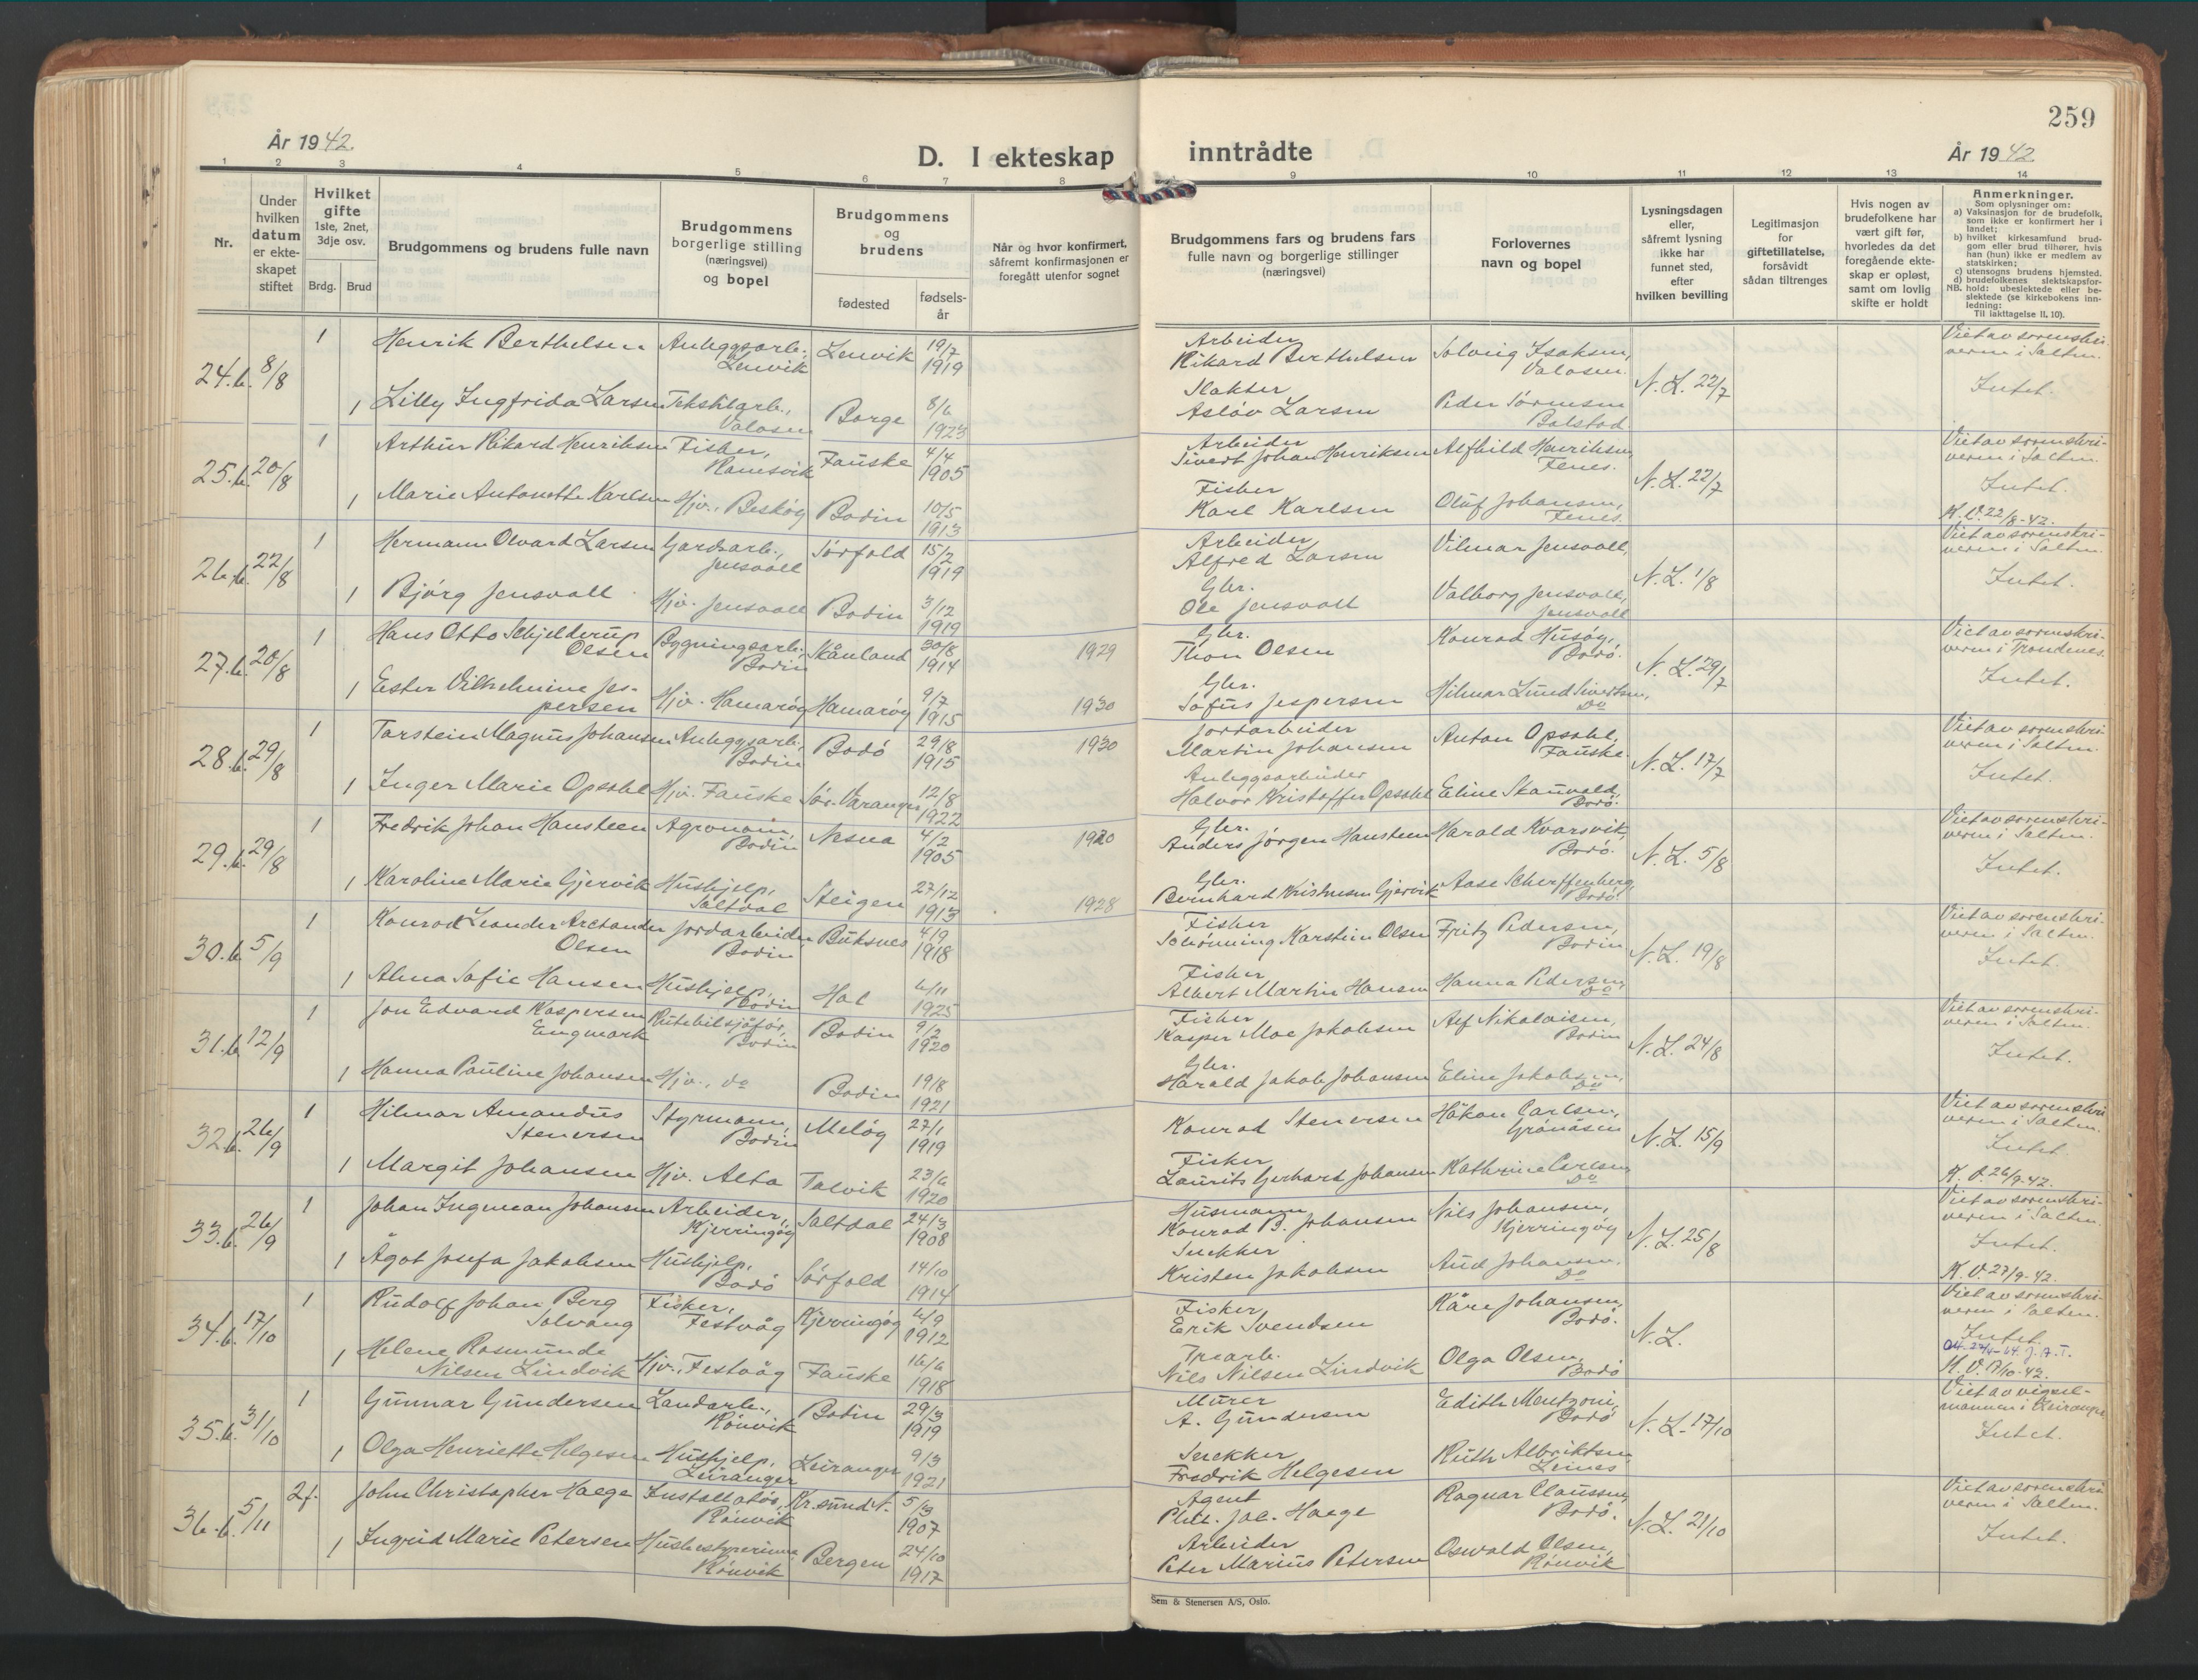 259
År 1942.
D. I ekteskap inntrådte
År 1942
1 2 3 4 5 6 7 8 9 10 11 12 13 14
Nr.
Under
hvilken
datum
er ekte-
skapet
stiftet
Hvilket
gifte
1ste, 2net,
3dje osv.
Brdg. Brud
Brudgommens og brudens fulle navn
Brudgommens
borgerlige stilling
(næringsvei)
og bopel
Brudgommens
og
brudens
fødested
fødsels-
år
Når og hvor konfirmert,
såfremt konfirmasjonen er
foregått utenfor sognet
Brudgommens fars og brudens fars
fulle navn og borgerlige stillinger
(næringsvei)
Forlovernes
navn og bopel
Lysningsdagen
eller,
såfremt lysning
ikke har
funnet sted,
efter
hvilken bevilling
Legitimasjon
for
giftetillatelse,
forsåvidt
sådan tiltrenges
Hvis nogen av
brudefolkene har
vært gift før,
hvorledes da det
foregående ekte-
skap er opløst,
samt om lovlig
skifte er holdt
Anmerkninger.
Som oplysninger om:
a) Vaksinasjon for de brudefolk,
som ikke er konfirmert her i
landet;
b) hvilket kirkesamfund brud-
gom eller brud tilhører, hvis
han (hun) ikke er medlem av
statskirken;
c) utensogns brudens hjemsted.
d) brudefolkenes slektskapsfor-
NB. hold: ubeslektede eller be-
slektede (se kirkebokens inn-
ledning:
Til iakttagelse II, 10).
24.b. 8/8 1 Henrik Berthelsen Anleggsarb., Lenvik 19/7 Arbeider Solveig Isaksen, N.L. 22/7 Viet av sorenskri-
Lenvik 1919 Rikard Berthelsen Valosen veren i Salten.
1 Lilly Ingfrida Larsen Tekstilarb., Borge 8/6 Slakter Peder Sørensen Intet.
Valosen 1923 Asløv Larsen Balstad
25.b. 20/8 1 Arthur Rikard Henriksen Fisker, Fauske 4/4 Arbeider Alfhild Henriksen N.L. 22/7 Viet av sorenskri-
1905 Sivert Johan Henriksen Fenes. veren i Salten.
1 Marie Antonette Karlsen Hjv., Beskøy Bodin 10/5 Fisker Oluf Johansen, Intet.
1913 Karl Karlsen Fenes. K.V. 22/8-42.
26.b. 22/8 1 Hermann Olvard Larsen Gardsarb., Sørfold 15/2 Arbeider Vilmar Jensvoll, N.L. 1/8 Viet av sorenskri-
Jensvoll 1919 Alfred Larsen veren i Salten.
1 Bjørg Jensvoll Hjv. Jensvoll Bodin 3/12 Gbr. Valborg Jensvoll, Intet.
1919 Ole Jensvoll Jensvoll
27.b. 20/8 1 Hans Otto Schjelderup Bygningsarb., Skånland 30/8 1929 Gbr. Konrad Husøy, N.L. 29/7 Viet av sorenskri-
Olsen Bodin 1914 Thon Olsen Bodø. veren i Trondenes.
1 Ester Vilhelmine Jes- Hjv. Hamarøy Hamarøy 9/7 1930 Gbr. Hilmar Lund Sivertsen, Intet.
persen 1915 Sofus Jespersen Do
28.b. 29/8 1 Torstein Magnus Johansen Anleggsarb., Bodø 29/8 1930 Jordarbeider Anton Opsahl, N.L. 17/7 Viet av sorenskri-
Bodin 1915 Martin Johansen Fauske. veren i Salten.
1 Inger Marie Opsahl Hjv. Fauske Sør-Varanger 12/8 Anleggsarbeider Eline Skauvold, Intet.
1922 Halvor Kristoffer Opsahl Bodø.
29.b. 29/8 1 Fredrik Johan Hansteen Agronom, Nesna 4/2 1920 Gbr. Harald Kvarsvik, N.L. 5/8 Viet av sorenskri-
Bodin 1905 Anders Jørgen Hansteen Bodø. veren i Salten.
1 Karoline Marie Gjervik Hushjelp, Steigen 27/12 1928 Gbr. Aase Scherffenberg, Intet.
Saltdal 1913 Bernhard Kristensen Gjervik Bodø.
30.b. 5/9 1 Konrad Leander Arctander Jordarbeider Buksnes 4/9 Fisker Fritz Pedersen, N.L. 19/8 Viet av sorenskri-
Olsen Bodin 1918 Schønning Karstein Olsen Bodin veren i Salten.
1 Alma Sofie Hansen Hushjelp, Hol 6/11 Fisker Hanna Pedersen, Intet.
Bodin 1925 Albert Martin Hansen Do
31.b. 12/9 1 Jon Edvard Kaspersen Rutebilsjåfør, Bodin 9/2 Fisker Alf Nikolaisen, N.L. 24/8 Viet av sorenskri-
Engmark Bodin 1920 Kasper Moe Jakobsen Bodin veren i Salten.
1 Hanna Pauline Johansen Hjv., do Bodin 19/8 Gbr. Eline Jakobsen, Intet.
1921 Harald Jakob Johansen Do
32.b. 26/9 1 Hilmar Amandus Styrmann, Meløy 27/1 Konrad Stenersen Håkon Carlsen, N.L. 15/9 Viet av sorenskri-
Stenersen Bodin 1919 Grønåsen veren i Salten.
1 Margit Johansen Hjv. Alta Talvik 23/6 Fisker Kathrine Carlsen Intet
1920 Laurits Gerhard Johansen Do K.V. 26/9-42.
33.b. 26/9 1 Johan Ingemar Johansen Arbeider, Saltdal 24/3 Husmann Nils Johansen, N.L. 25/8 Viet av sorenskri-
Kjerringøy 1908 Konrad B. Johansen Kjerringøy veren i Salten.
1 Ågot Josefa Jakobsen Hushjelp, Sørfold 14/10 Snekker Aud Johansen, Intet.
Bodø 1914 Kristen Jakobsen Do K.V. 27/9-42.
34.b. 17/10 1 Rudolf Johan Berg Fisker, Kjerringøy 4/9 Fisker Kåre Johansen, N.L. Viet av sorenskri-
Solvang Festvåg 1912 Erik Svendsen Bodø. veren i Salten.
1 Helene Rosmunde Hjv., Festvåg Fauske 16/6 Trearb. Olga Olsen, Intet.
Nilsen Lindvik 1918 Nils Nilsen Lindvik Bodø K.V. 17/10-42.
35.b. 31/10 1 Gunnar Gundersen Landarb., Bodin 29/3 Murer Edith Mentzoni, N.L. 17/10 Viet av vigsel-
Rønvik 1919 A. Gundersen Bodø mannen i Leiranger
1 Olga Henriette Helgesen Hushjelp, Leiranger 9/3 Snekker Ruth Albriktsen, Intet.
Leiranger 1921 Fredrik Helgesen Leines
36.b. 5/11 2f. John Christopher Haege Installatør, Kr.sund N. 5/3 Agent Ragnar Claussen, N.L. 21/10 Viet av sorenskri-
Rønvik 1907 Jac. Haege Bodø. veren i Salten.
1 Ingrid Marie Petersen Husbestyrerinne, Bergen 24/10 Arbeider Oswald Olsen, Intet.
Rønvik 1917 Peter Marius Petersen Rønvik
Sem & Stenersen A/S, Oslo.